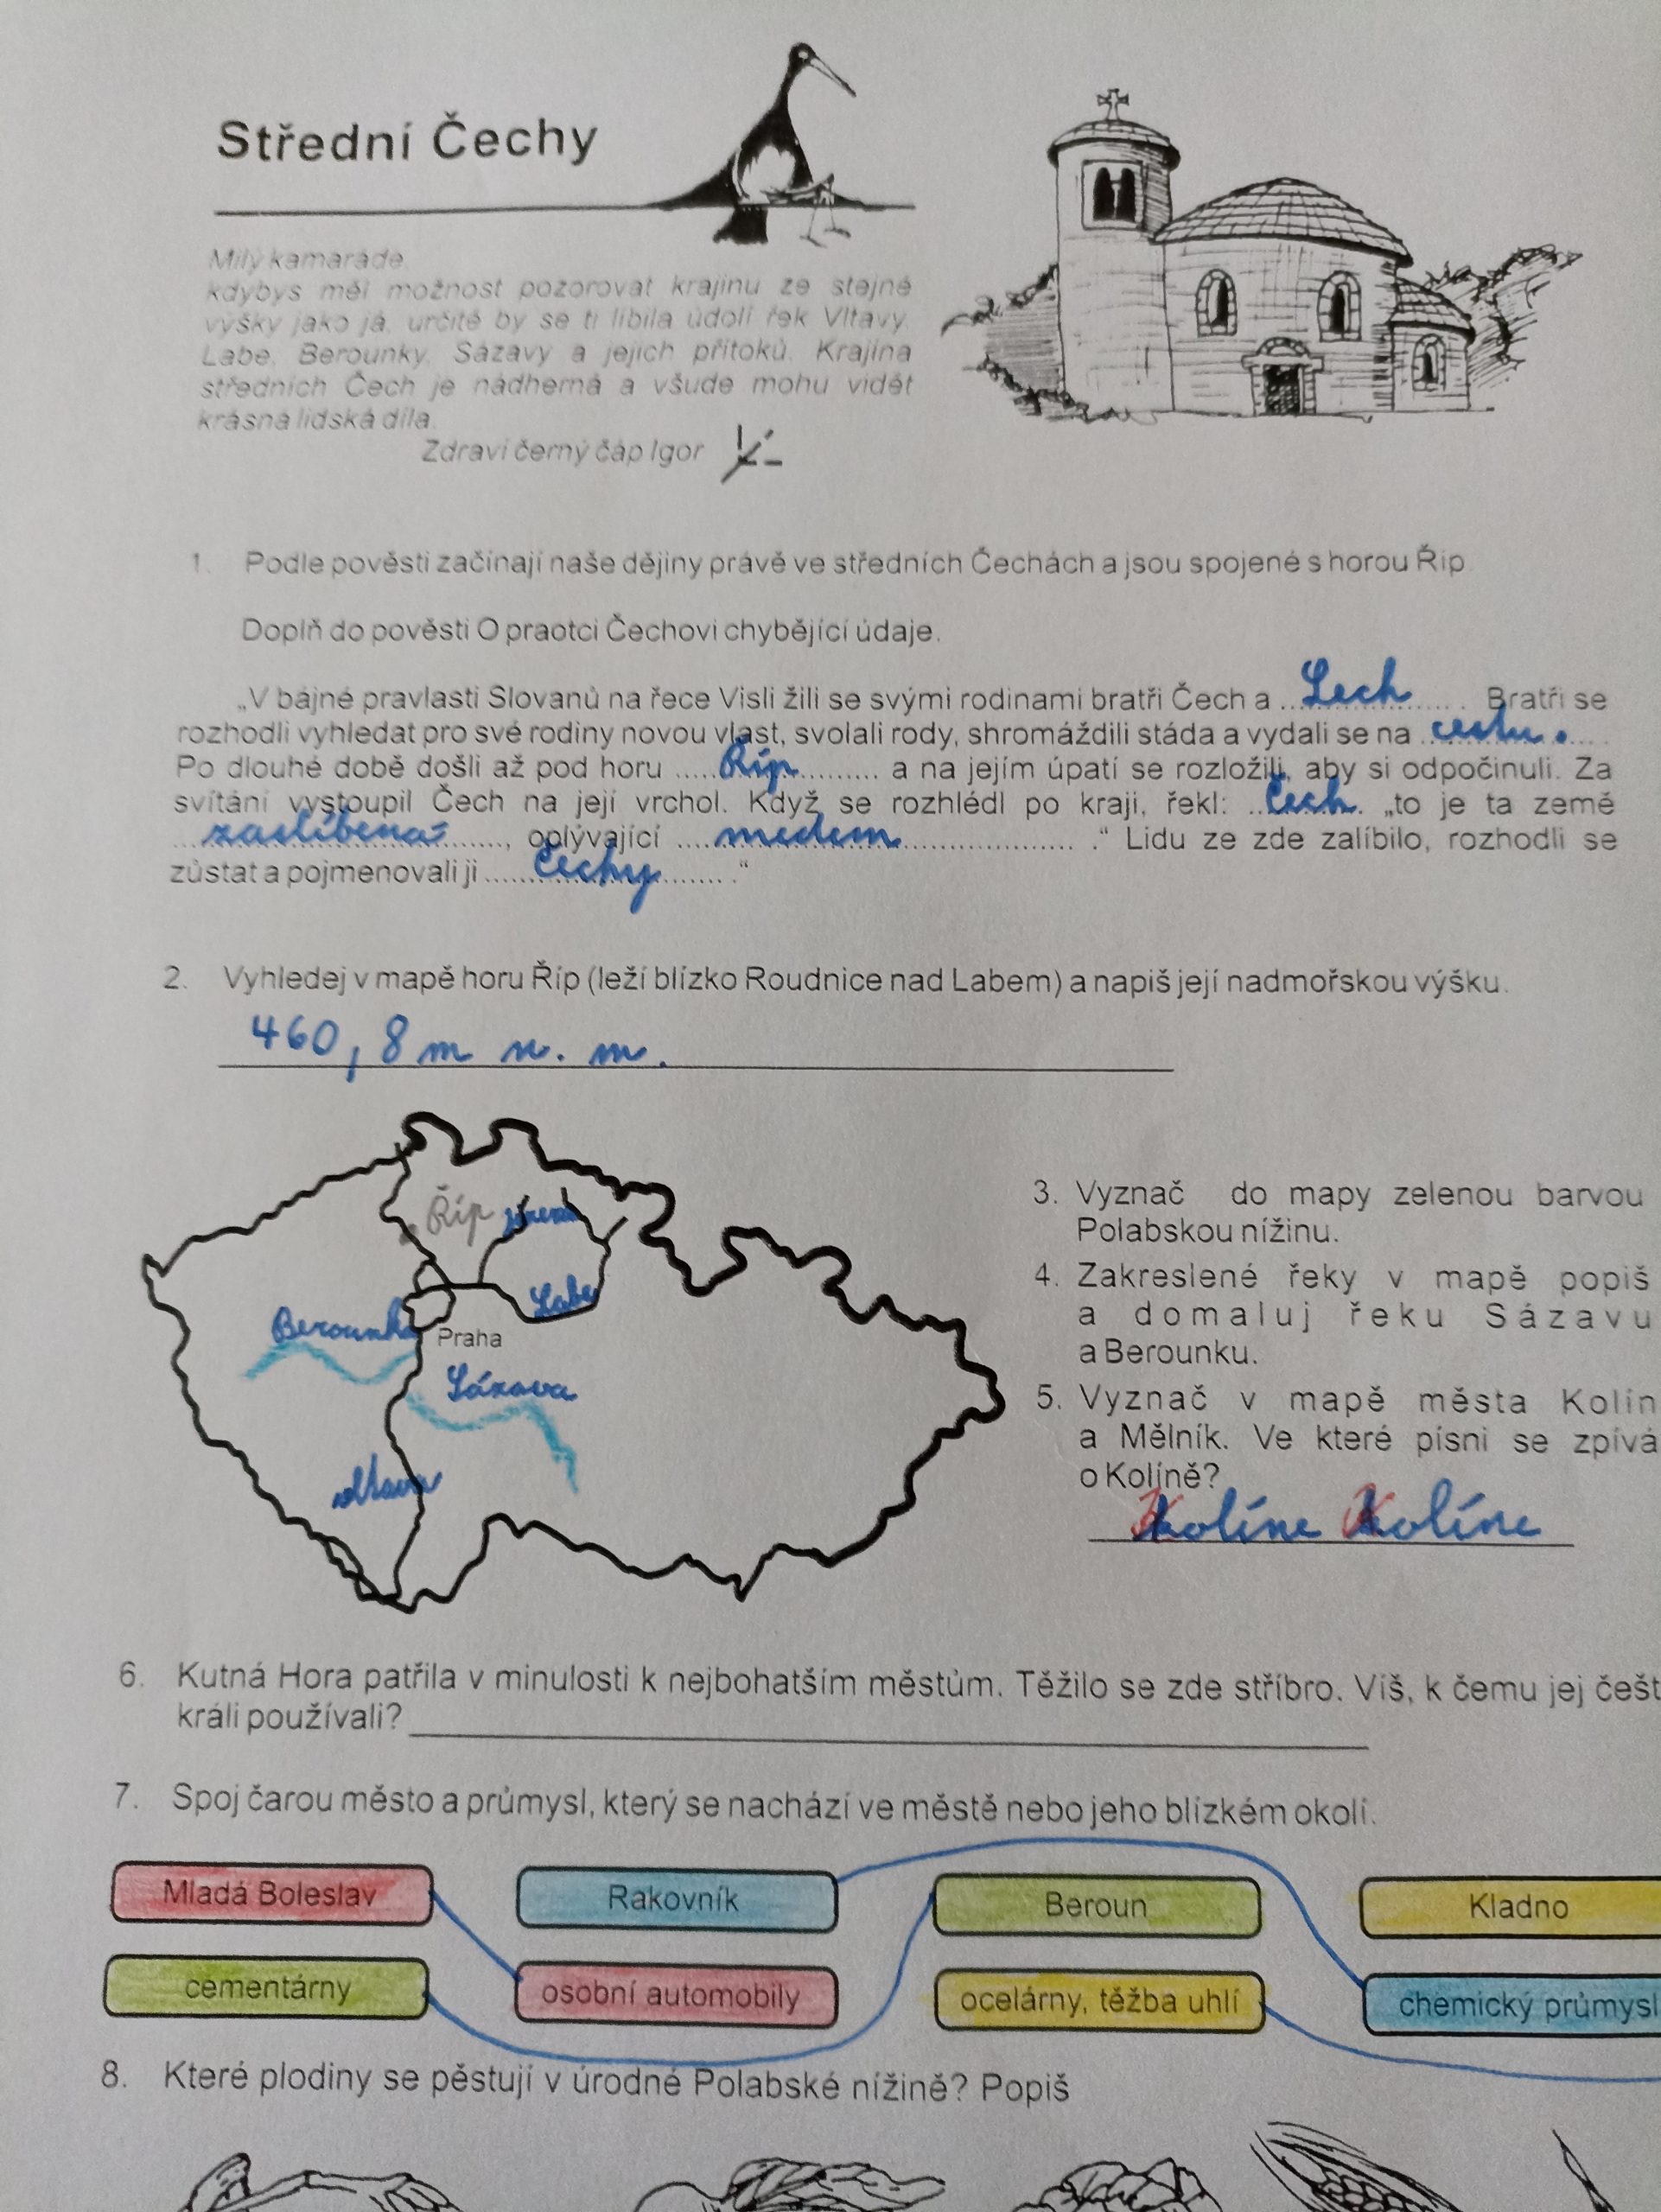 Střední Čechy
Milý kamaráde,
kdybys měl možnost pozorovat krajinu ze stejné
výšky jako já, určitě by se ti líbila údolí řek Vltavy,
Labe, Berounky, Sázavy a jejich přítoků. Krajina
středních Čech je nádherná a všude mohu vidět
krásná lidská díla.
Zdraví černý čáp Igor
1. Podle pověsti začínají naše dějiny právě ve středních Čechách a jsou spojené s horou Říp.
Doplň do pověsti O praotci Čechovi chybějící údaje.
„V bájné pravlasti Slovanů na řece Visli žili se svými rodinami bratři Čech a ... Lech .... Bratři se
rozhodli vyhledat pro své rodiny novou vlast, svolali rody, shromáždili stáda a vydali se na ... cestu. ...
Po dlouhé době došli až pod horu ..... Říp .......... a na jejím úpatí se rozložili, aby si odpočinuli. Za
svítání vystoupil Čech na její vrchol. Když se rozhlédl po kraji, řekl: .. Čech . „to je ta země
... zaslíbená ......, oplývající .... medem .................... .“ Lidu ze zde zalíbilo, rozhodli se
zůstat a pojmenovali ji ...... Čechy ....... .“
2. Vyhledej v mapě horu Říp (leží blízko Roudnice nad Labem) a napiš její nadmořskou výšku.
460,8 m n. m.
Říp Jizera
Labe
Berounka
Praha
Sázava
vltava
3. Vyznač do mapy zelenou barvou
Polabskou nížinu.
4. Zakreslené řeky v mapě popiš
a domaluj řeku Sázavu
a Berounku.
5. Vyznač v mapě města Kolín
a Mělník. Ve které písni se zpívá
o Kolíně?
Kolíne Kolíne
6. Kutná Hora patřila v minulosti k nejbohatším městům. Těžilo se zde stříbro. Víš, k čemu jej češt
králi používali?
7. Spoj čarou město a průmysl, který se nachází ve městě nebo jeho blízkém okolí.
Mladá Boleslav Rakovník Beroun Kladno
cementárny osobní automobily ocelárny, těžba uhlí chemický průmysl
8. Které plodiny se pěstují v úrodné Polabské nížině? Popiš